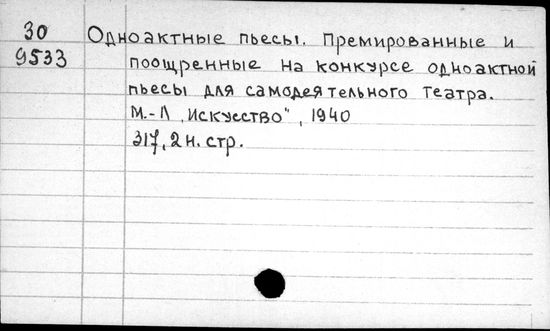 30
9533
Одноактные пьесы. Премированные и
поощренные на конкурсе одноактной
пьесы для самодеятельного театра.
М.-Л „Искусство", 1940
317, 2 н. стр.